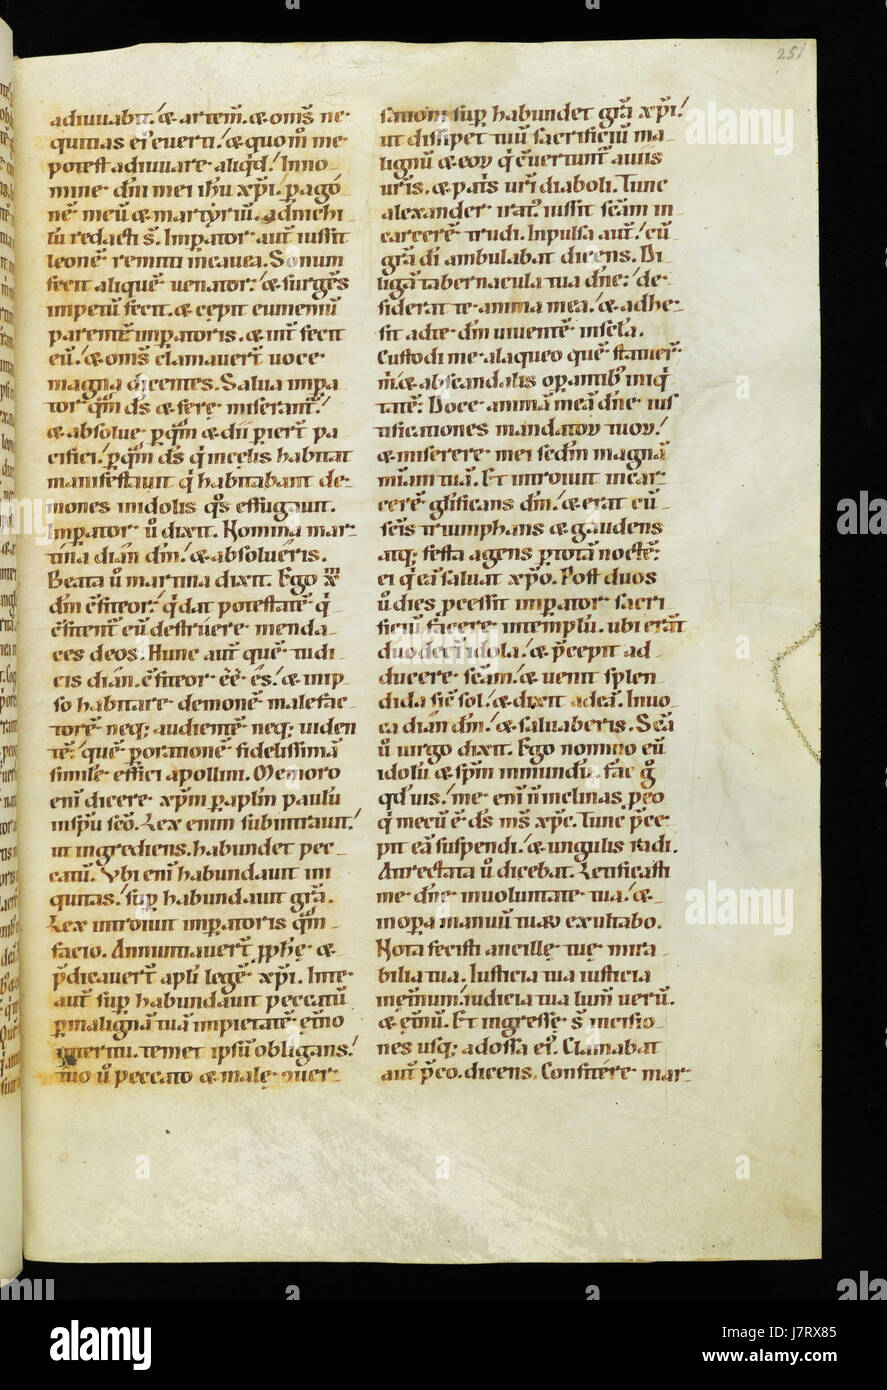 251
adiuuabit. & artem̄. & om̄s ne-
quitias ei' euerti. & quom̄ me-
potest adiuuare aliq̇d. Inno
mine dn̄i mei ihū xp̄i. p agó
nē meū & martyriū. adnichi
lū redacti s̄. Imp̄ator aūt iussit
leonē remitti incauea. Sonum
fecit aliquē uenator. & surgēs
impetū fecit. & cepit eumeniū
parentē imp̄atoris. & int̄fecit
eū. & om̄s clamauer̄t uoce
magna dicentes. Salua impa
tor q̄m d̄s & fere miserant̄.
& absolue p q̄m & dii p ier̄t pa
cifici. p q̄m d̄s q̇ incelis habitat
manifestauit q̇ habitabant de-
mones inidolis q̄s effugauit.
Imp̄ator ū dixit. Nomina mar-
tina dian̄ dm̄. & absolueris.
Beata ū martina dixit. Ego xp̄m
dm̄ c̄fiteor. q̇ dat potestatē q̇
c̄fitent̄ eū destruere menda
ces deos. Hunc aūt quē tu di
cis dian̄. c̄fiteor ēē ēs. & in ip
so habitare demonē malefac
torē neq; audientē neq; uiden
tē. quē p orationē fidelissimā
similē effici apollini. Memoro
enī dicere xp̄m p ap̄lm paulū
in sp̄u sc̄o. Lex enim subintrauit.
ut ingrediens. habundet pec
catū. Vbi enī habundauit ini
quitas. sup̄ habundauit gr̄a.
Lex introiuit imp̄atoris q̄m
facio. Annuntiauer̄t p phe &
p̄dicauer̄t ap̄li legē xp̄i. Inte
aūt sup̄ habundauit peccatū
p malignā tuā impietatē. et̄no
interitu. temet ipsū obligans.
tuo ū peccato & male
sationi sup̄ habundet gr̄a xp̄i.
ut dissipet tuū sacrificiū ma
lignū & eoꝝ q̇ c̄uertunt̄ auiis
ur̄is. & pat̄s ur̄i diaboli. Tunc
alexander irat' iussit sc̄am in
carcerē trudi. Inpulsa aūt. cū
gr̄a dī ambulabat dicens. Di
ligā tabernacula tua dn̄e. de-
siderat te anima mea. & adhe
sit ad te dm̄ uiuentē
Custodi me alaqueo quē statuer̄
m̄. & ab scandalis op̄antib' iniq̇
tatē. Doce animā meā dn̄e ius
tificationes mandatoꝝ tuoꝝ.
& miserere mei sedm̄ magnā
mīam tuā. Et introiuit incar
cerē gl̄ificans dm̄. & erat cū
sc̄is triumphans & gaudens
atq; festa agens p totā noctē.
ei q̇ eā saluat xp̄o. Post duos
ū dies p̄cessit imp̄ator sacri
ficiū facere intemplū. ubi erāt
duodeci idola. & p̄cepit ad
ducere sc̄am. & uenit splen
dida sic̄ sol. & dixit ad eā. Inuo
ca dian̄ dm̄. & saluaberis. Sc̄a
ū uirgo dixit. Ego nomino eū
idolū & sp̄m inmundū. fac g̊
qd uis. me enī n̄ inclinas. p eo
q̇ mecū ē d̄s m̄s xp̄c. Tunc p̄ce
pit eā suspendi. & ungulis radi.
Attrectata ū dicebat. Letificasti
me dn̄e inuoluntate tua. &
inopa manuū tuaꝝ exultabo.
Nota fecisti ancille tue mira
bilia tua. Iusticia tua iusticia
iudicia tua lum̄ uerū.
& et̄nū. Et ingresse s̄ incisio
nes usq; ad ossa ei'. Clamabat
aūt p̄co. dicens. Confitére mar-
alamy
J7RX85
www.alamy.com